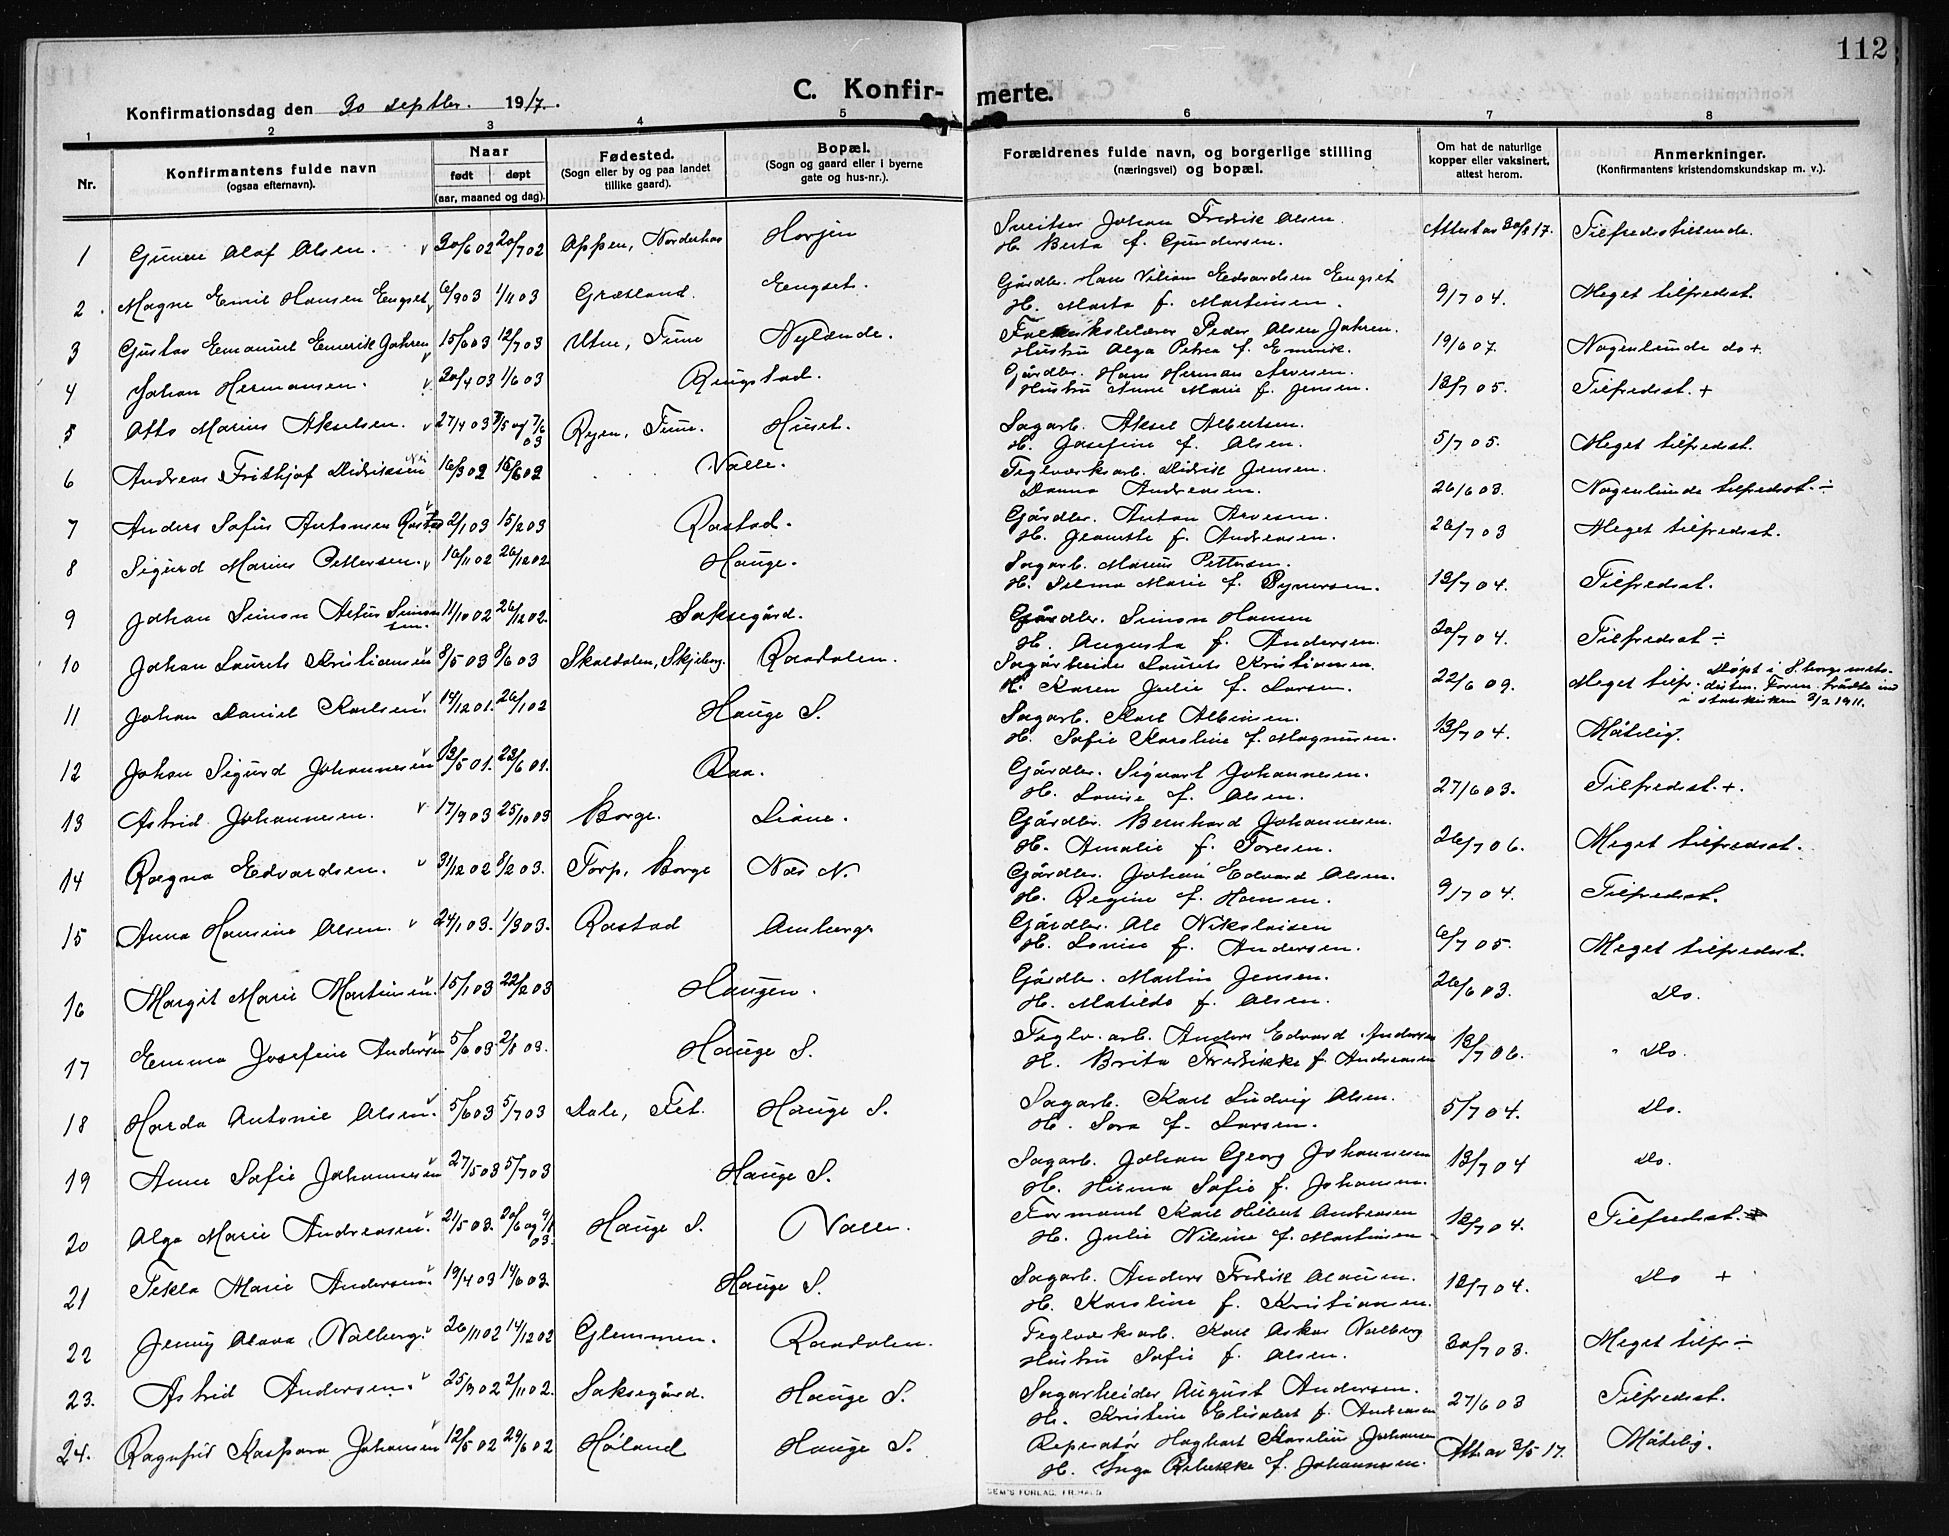 112
C. Konfir- merte.
Konfirmationsdag den 30 septbr. 1917.
1 2 3 4 5 6 7 8
Nr.
Konfirmantens fulde navn
(ogsaa efternavn).
Naar
født døpt
(aar, maaned og dag).
Fødested.
(Sogn eller by og paa landet
tillike gaard).
Bopæl.
(Sogn og gaard eller i byerne
gate og hus-nr.).
Forældrenes fulde navn, og borgerlige stilling
(næringsvei) og bopæl.
Om hat de naturlige
kopper eller vaksinert,
attest herom.
Anmerkninger.
(Konfirmantens kristendomskundskap m. v.).
Sveitser Johan Fredrik Olsen.
1 Gunnar Olaf Olsen. v 30/6 02 20/7 02 Oppen, Norderhov Horgen H. Berta f. Gundersen. Attest av 30/8 17. Tilfredsstillende.
Gårdbr. Hans Vilian Edvardsen Engset
2 Magne Emil Hansen Engset v 6/9 03 1/11 03 Græsland. Engset. H. Marta f. Martinsen. 9/7 04. Meget tilfredsst.
Peder Olsen Jahren.
3 Gustav Emanuel Emerik Jahren v 15/6 03 12/7 03 Utne, Tune Nylænde. Hustru Olga Petrea f. Emmik. 19/6 07. Nogenlunde do +.
Gårdbr. Hans Herman Arvesen.
4 Johan Hermansen. v 20/4 03 1/6 03 Ringstad. Hustru Anne Marie f. Jensen. 13/7 05. Tilfredsst. +
Sagarb. Aksel Albertsen.
5 Otto Marius Akselsen. v 27/4 03 7/5 og 7/6 03 Ryen, Tune. Huset. H. Josefine f. Olsen. 5/7 05. Meget tilfredsst.
Teglverksarb. Didrik Jensen.
6 Andreas Fridhjof Didriksen 16/3 02 15/6 02 Valle. Andreasen. 26/6 03. Nogenlunde tilfredsst. ÷
Gårdbr. Anton Arvesen.
7 Anders Sofus Antonsen Rostad v 2/1 03 15/2 03 Rostad. H. Jeanette f. Andreasen. 26/7 03 Meget tilfredsst.
Sagarb. Marius Pettersen.
8 Sigurd Marius Pettersen. v 16/11 02 26/12 02 Hauge. H. Selma Marie f. Syversen. 13/7 04. Tilfredsst.
Gårdbr. Simon Hansen
9 Johan Simon Artur Simonsen. 11/10 02 26/12 02. Saksegård. H. Augusta f. Andersen. 20/7 04. Tilfredsst ÷
Sagarbeider Laurits Kristiansen.
10 Johan Laurits Kristiansen v 8/5 03 8/6 03 Skaldalen, Skjeberg. Raadalen. H. Karen Julie f. Larsen. 22/6 09. Meget tilfr. Døpt i S.borgs metodistm. Foren. trådte ind i statskirken 3/2 1911.
Sagarb. Karl Albinsen.
11 Johan Daniel Karlsen. v 14/12 01. 26/1 02 Hauge S. H. Sofie Karoline f. Magnusen. 13/7 04. Måtelig.
Gårdbr. Sigvart Johannesen.
12 Johan Sigurd Johannesen v 13/5 01. 23/6 01. Raa. H. Lovise f. Olsen. 27/6 03. Tilfredsst. +.
Gårdbr. Bernhard Johannesen.
13 Astrid Johannesen. v 17/9 03 25/10 03 Borge. Liane. H. Amalie f. Toresen. 26/7 06. Meget tilfredsst.
Gårdbr. Johan Edvard Olsen.
14 Ragna Edvardsen. v 31/12 02 8/2 03. Torp, Borge Næs N. H. Regine f. Hansen. 9/7 04. Tilfredsst.
Gårdbr. Ole Nikolaisen
15 Anna Hansine Olsen. v 24/1 03. 1/3 03. Rostad Omberg H. Lovise f. Andersen. 6/7 05. Meget tilfredsst.
Gårdbr. Martin Jensen.
16 Margit Marie Martinsen. v 15/1 03 22/2 03 Haugen. H. Matilde f. Olsen. 26/6 03. Do.
Teglv. arb. Anders Edvard Andersen
17 Emma Josefine Andersen v 5/6 03 2/8 03. Hauge S. H. Brita Fredrikke f. Andreasen 13/7 06. Do.
Sagarb. Karl Ludvig Olsen.
18 Harda Antonie Olsen. v 5/6 03 5/7 03 Dale, Fet. Hauge S. H. Sora f. Larsen. 5/7 04. Do.
Sagarb. Johan Georg Johannesen
19 Anne Sofie Johannesen v 27/5 03 5/7 03 Hauge S. H. Hilma Sofie f. Johansen. 13/7 04 Do.
Formand Karl Hilbert Andreasen
20 Olga Marie Andreasen. v 21/5 03. 20/6 og 9/8 03. Hauge S. Valle. H. Julie Nilsine f. Martinsen. 12/7 04. Tilfredsst.
Sagarb. Anders Fredrik Olausen.
21 Tekla Marie Andersen. v 19/4 03 14/6 03. Hauge S. H. Karoline f. Kristiansen. 12/7 04. Do +
Teglverksarb. Karl Oskar Valberg
22 Jenny Olava Valberg. v 26/11 02 14/12 02 Glemmen. Raadalen. Hustru Sofie f. Olsen. 30/7 03. Meget tilfr ÷
Sagarbeider August Andersen.
23. Astrid Andersen. v 25/9 02 2/11 02. Saksegård. Hauge S. H. Kristine Elisabet f. Andreasen 27/6 03 Tilfredsst.
Reperatør Haghart Karelius Johansen
24. Ragnfrid Kaspara Johansen v 12/5 02 29/6 02 Høland Hauge S. H. Inga Rebekke f. Johannesen. Att av 3/5 17. Måtelig.
SEM'S FORLAG, FR.HALD